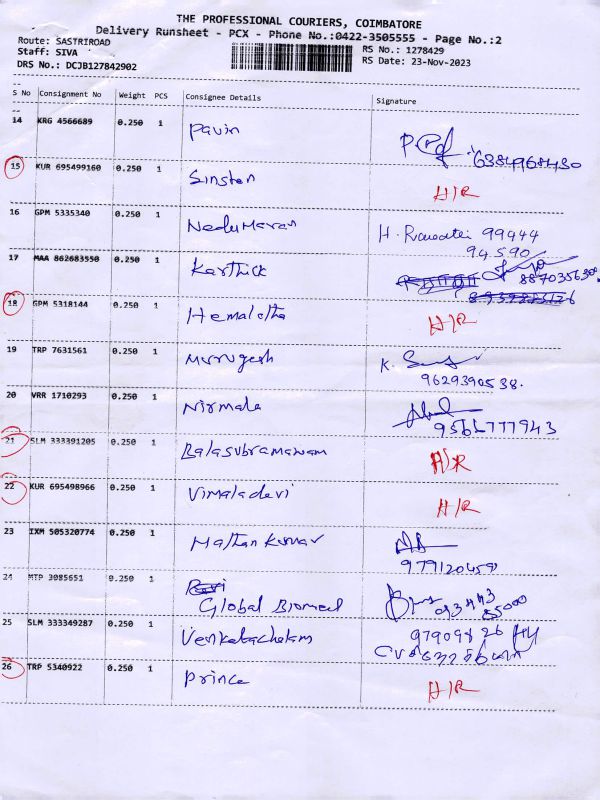 THE PROFESSIONAL COURIERS, COIMBATORE
Delivery Runsheet - PCX - Phone No.:0422-3505555 - Page No.:2
Route: SASTRIROAD RS No.: 1278429
Staff: SIVA RS Date: 23-Nov-2023
DRS No.: DCJB127842902
S No Consignment No Weight PCS Consignee Details Signature
14 KRG 4566689 0.250 1 Pavin
6384968430
15 KUR 695499160 0.250 1 Sinsten H/R
16 GPM 5335340 0.250 1 Nedumaran H. 99444
94590
17 MAA 862683550 0.250 1 Karthick
18 GPM 5318144 0.250 1 Hemalatha H/R
19 TRP 7631561 0.250 1 Murugesh K.
9629390538.
20 VRR 1710293 0.250 1 Nirmala
21 SLM 333391205 0.250 1 Balasubramaniam H/R
22 KUR 695498966 0.250 1 Vimaladevi H/R
23 IXM 505320774 0.250 1 Mathan Kumar
24 MTP 3085651 0.250 1
Global Biomed
25 SLM 333349287 0.250 1 Venkatachalam
26 TRP 5340922 0.250 1 Prince H/R